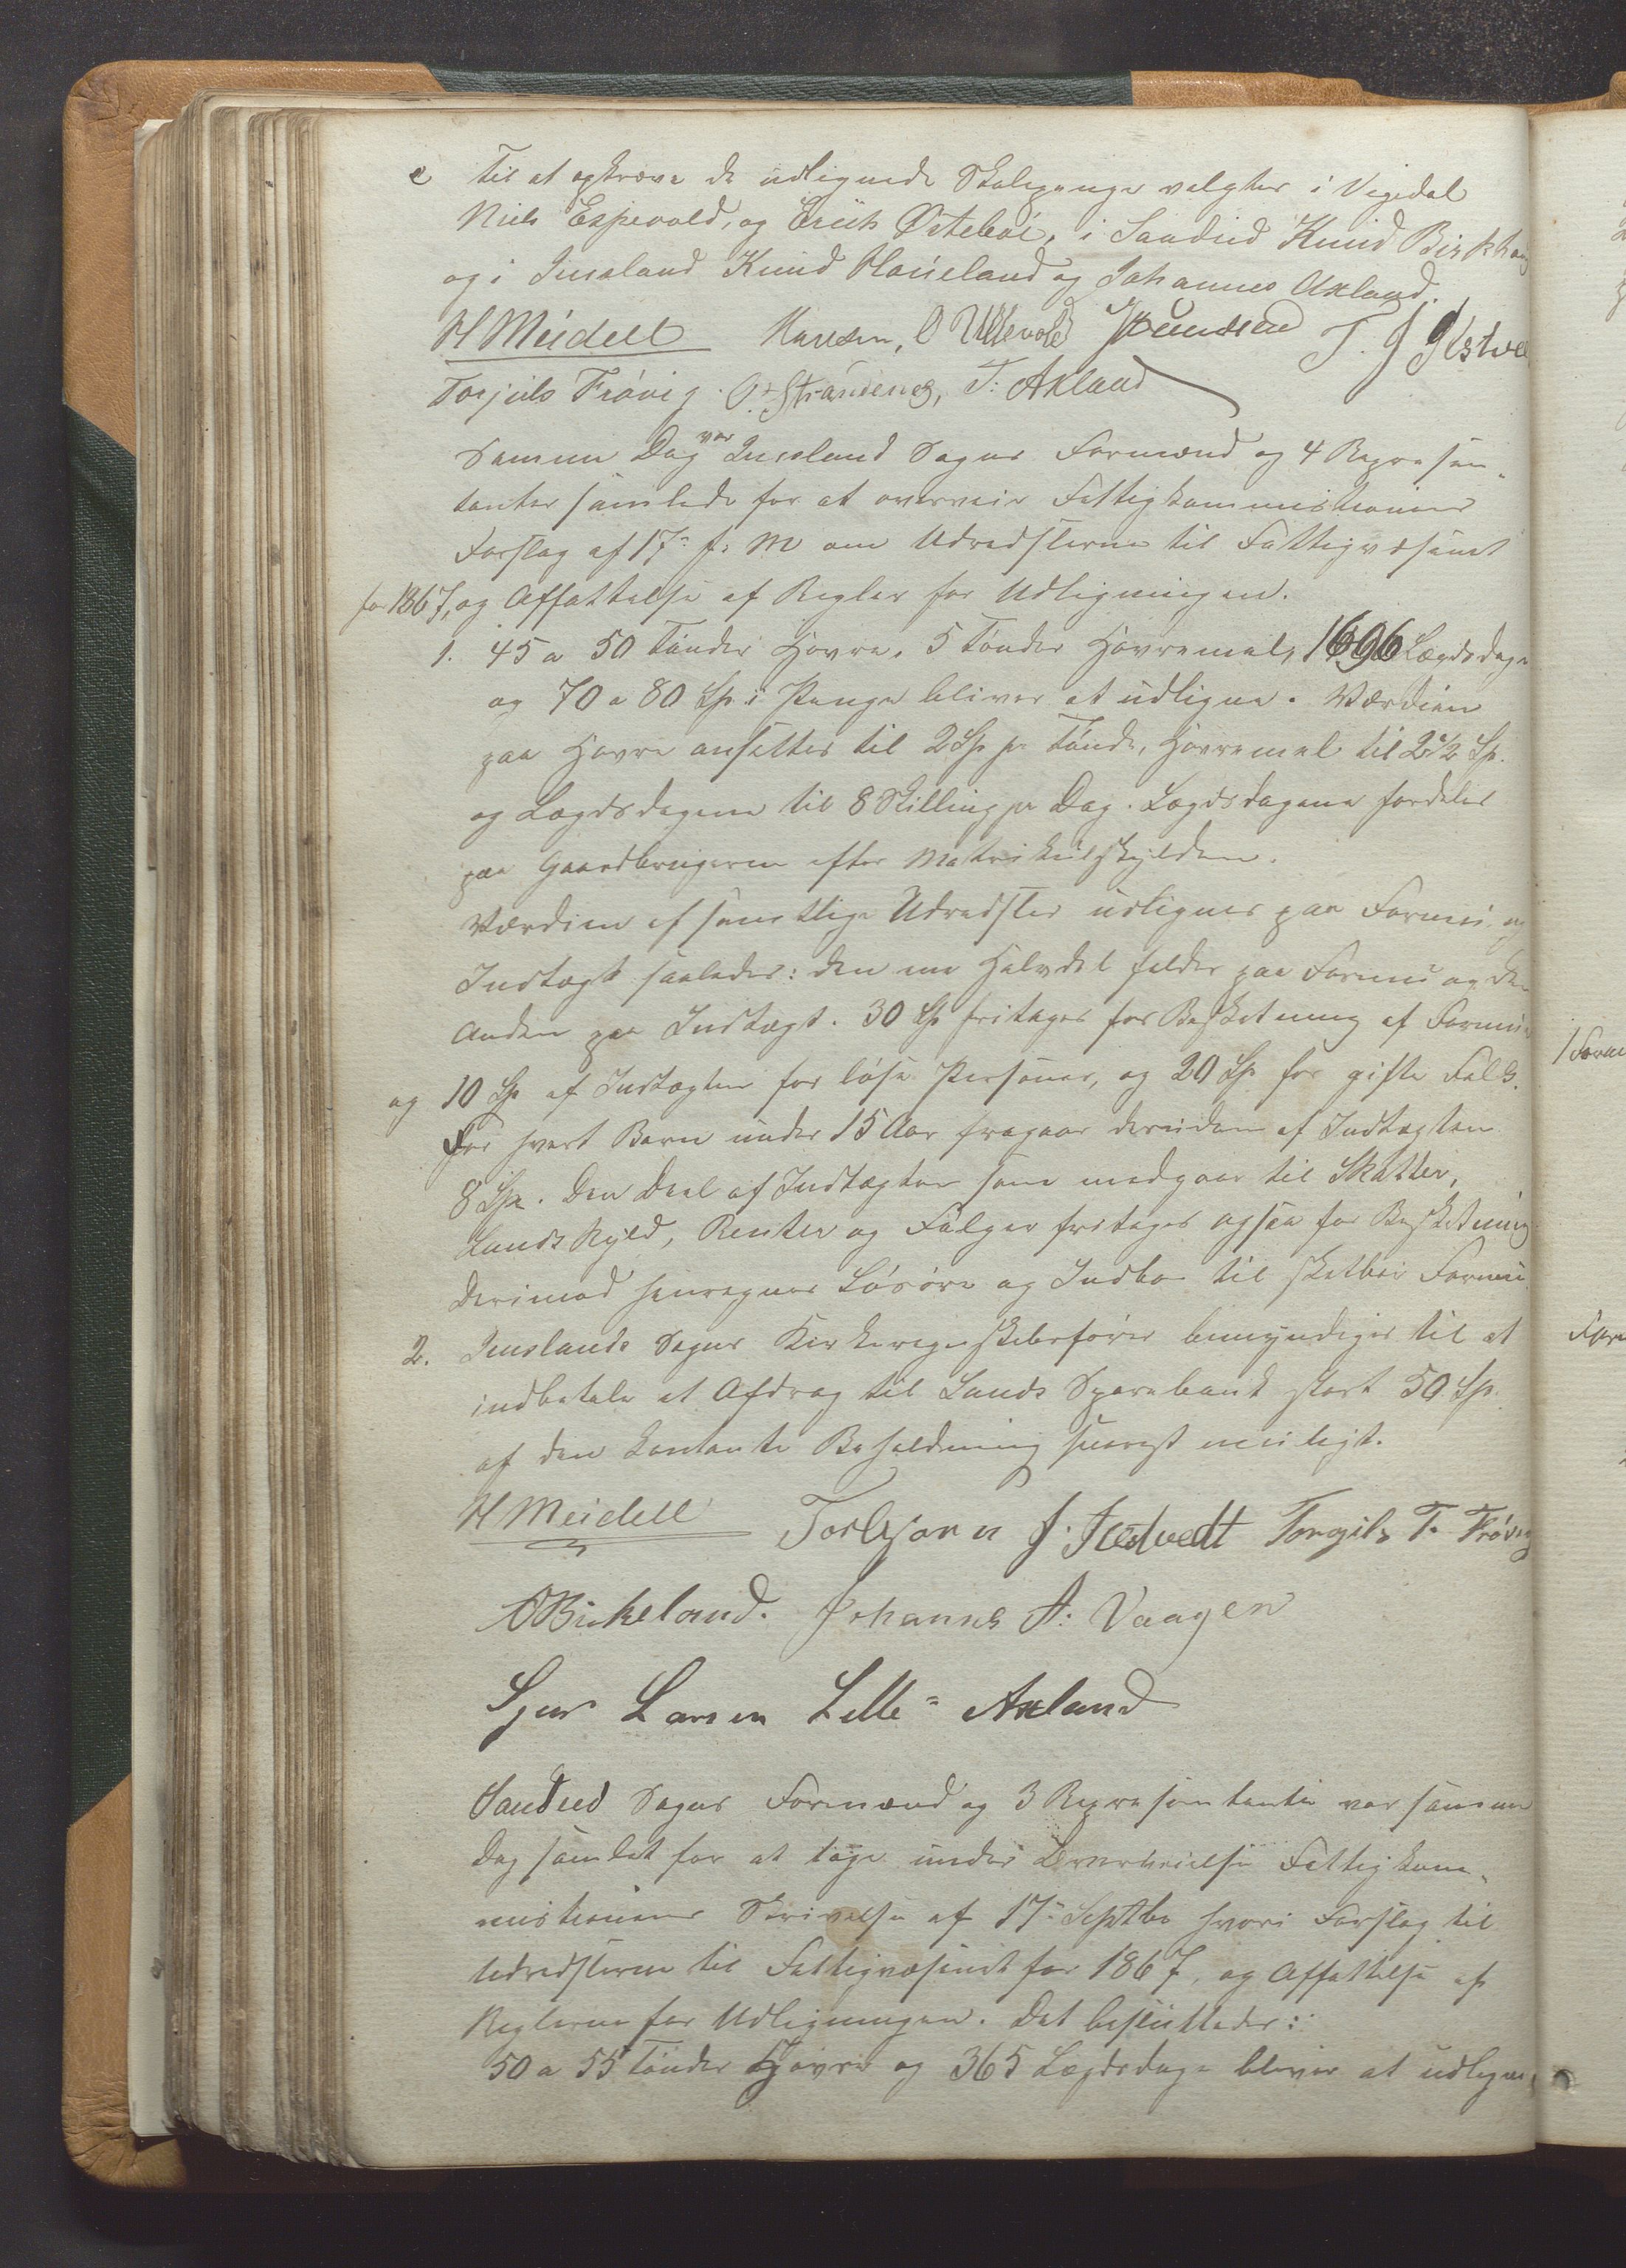 e Til at opkræve de udlignede Skolepenge valgtes i Vigedal
Niels Espevold, og Erich Østebøe, i Sandeid Knud Birkhaug
og i Imsland Knud Haueland og Johannes Axland.
H Meidell Hansen, O Ullevold T. J Ilstve
Torjuls Frövig. O: Strandenes, T: Axland
Samme Dag var Imsland Sogns Formænd og 4 Repræsen-
tanter samlede for at overveie Fattigkommissionens
Forslag af 17de f. M om Udredslerne til Fattigvæsenet
for 1867, og Affattelse af Regler for Udligningen.
1. 45 a 50 Tönder Havre, 5 Tönder Havremel, 1696 Lægdsdage
og 70 a 80 Sp i Penge bliver at udligne. Værdien
paa Havre ansættes til 2 Sp pr Tönde, Havremel til 2 1/2 Sp.
og Lægdsdagene til 8 Skilling pr Dag. Lægdsdagene fordeles
paa Gaardbrugerne efter Matrikulskylden.
Værdien af samtlige Udredsler udlignes paa Formue og
Indtægt saaledes: den ene Halvdel falder paa Formue og den
Anden paa Indtægt. 30 Sp fritages for Beskatning af Formue
og 10 Sp af Indtægten for löse Personer, og 20 Sp for gifte Folk.
For hvert Barn under 15 Aar fragaar desuden af Indtægten
8 Sp. Den Deel af Indtægten som medgaar til Skatter,
Landskyld, Renter og Fölger fritages ogsaa for Beskatning
Derimod henregnes Lösöre og Indbo til skatbar Formue
2. Imslands Sogns Kirkeregnskabsförer bemyndiges til at
indbetale et Afdrag til Sands Sparebank stort 50 Sp.
af den kontante Beholdning snarest muligt.
H Meidell Torbjörn J. Ilstvedt Torgils T. Frövig
Birkeland. Johannes A: Vaagen
Sjur Larsen Lille- Axland
Sandeid Sogns Formænd og 3 Repræsentanter var samme
Dag samlet for at tage under Overveielse Fattigkom-
missionens Skrivelse af 17de Septbr hvori Forslag til
Udredslerne til Fattigvæsenet for 1867, og Affattelse af
Reglerne for Udligningen. Det besluttedes:
50 a 55 Tönder Havre og 365 Lægdsdage bliver at udligne